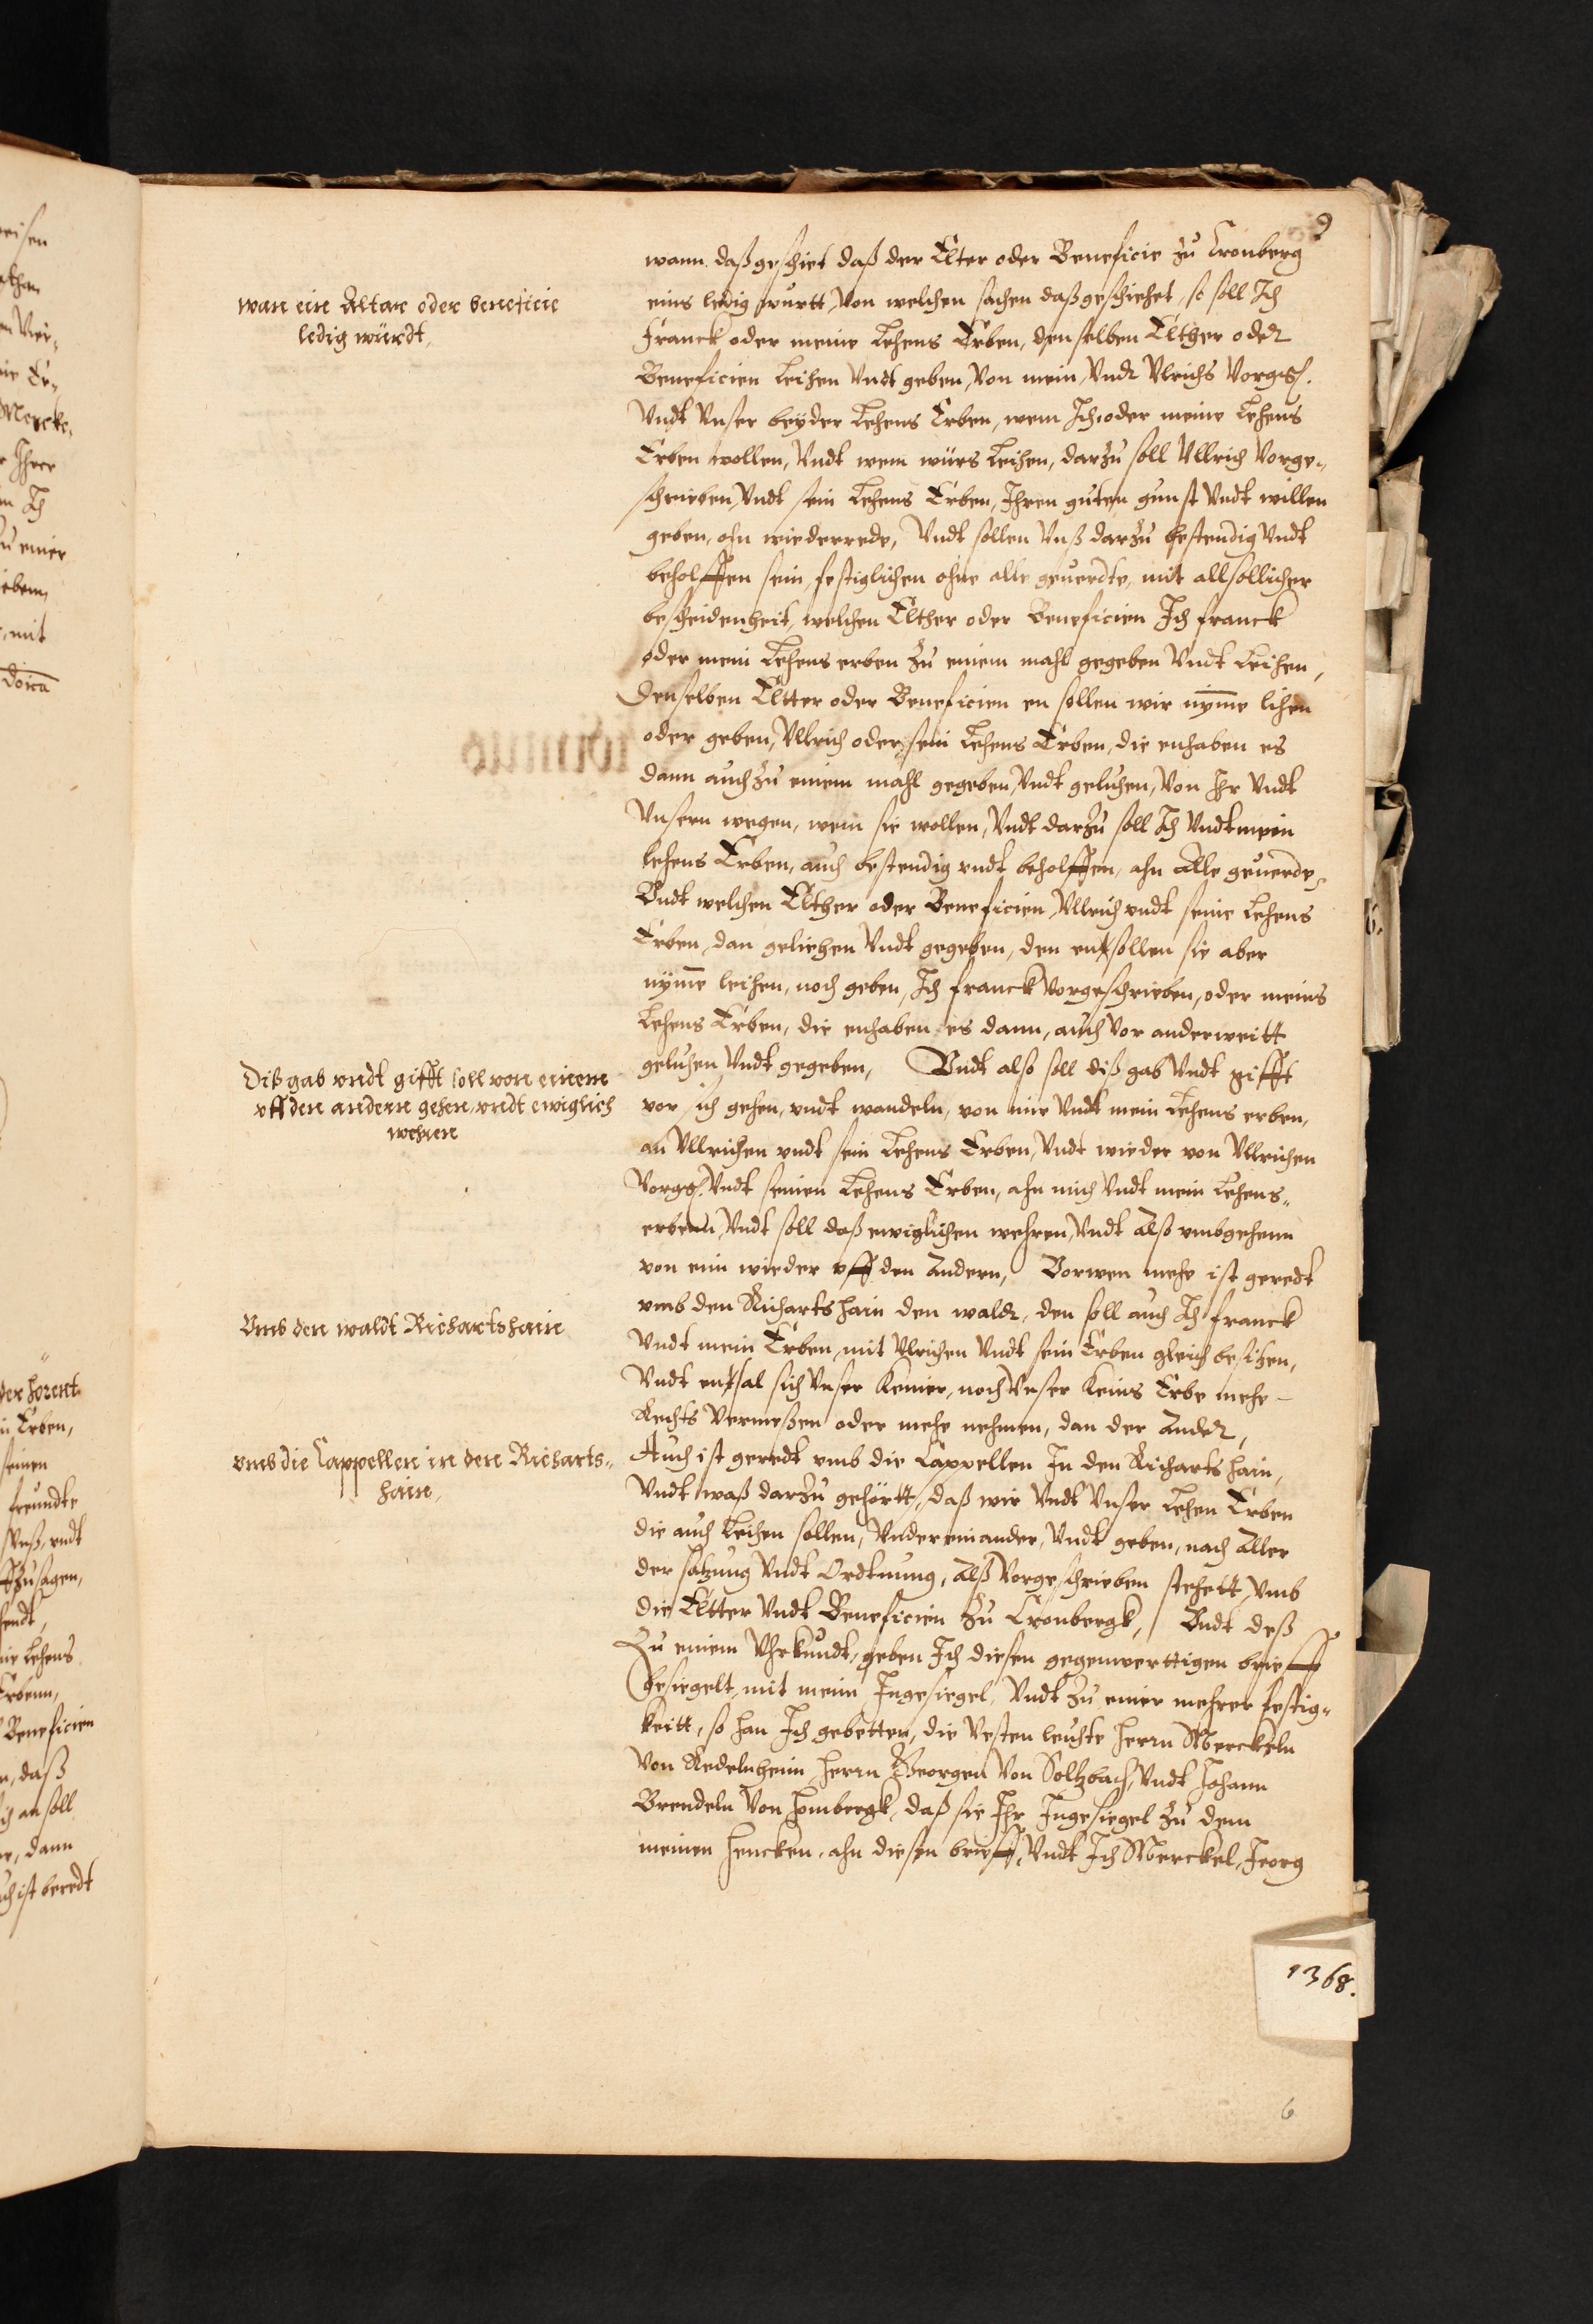 9
wann daß geschiet daß der Elter oder Beneficie zu Cronberg
wan ein Altar oder beneficie
ledig würdt,
eins ledig wurtt, Von welchen sachen daß geschiehet, so soll Ich
Franck oder meine Lehens Erben, denselben Elther oder
Beneficien Leihen Vndt geben, Von mein, Vndt Vlrichs Vorgß.
Vndt Vnser beyder Lehens Erben, wem Ich oder meine Lehens
Erben wollen, Vndt wem würs Leihen, darzu soll Vllrich Vorge„
schrieben, Vndt sein Lehens Erben, Ihren guten gunst Vndt willen
geben, ohn wiederrede, Vndt sollen Vnß darzu bestendig Vndt
beholffen sein, festiglichen ohne alle geuerdte, mit all sollicher
bescheidenheit, welchen Elther oder Beneficien Ich franck
oder mein Lehens erben zu einem mahl gegeben Vndt Leihen,
Denselben Eltter oder Beneficien en sollen wir nymme lihen
oder geben, Vllrich oder sein Lehens Erben, die enhaben es
dann auch zu einem mahl gegeben, Vndt geluhen, Von Ihr Vndt
Vnsern wegen, wem sie wollen, Vndt darzu soll Ich Vndt mein
lehens Erben, auch bestendig vndt beholffen, ahn Alle geuerde,
Vndt welchen Elther oder Beneficien Vllrich vndt seine Lehens
Erben, dan geliehen Vndt gegeben, den ensollen sie aber
nymme leihen, noch geben, Ich franck Vorgeschrieben, oder meins
Lehens Erben, die enhaben es dann, auch Vor anderweitt
geluhen Vndt gegeben, Vndt also soll diß gab Vndt gifft
Diß gab vndt gifft soll von einem
vff den andern gehen, vndt ewiglich
wehren
vor sich gehen, vndt wandeln, von mir Vndt mein Lehens erben,
an Vllrichen vndt sein Lehens Erben, Vndt wieder von Vllrichen
Vorgß. Vndt seinen Lehens Erben, ahn mich Vndt mein Lehens„
erbenn, Vndt soll daß ewiglichen wehren, Vndt Alß vmbgehenn
von eim wieder vff den Andern, Vorwen mehr ist geredt
vmb den Richarts hain den waldt, den soll auch Ich franck
Vmb den waldt Richartshain
Vndt mein Erben, mit Vlrichen Vndt sein Erben gleich besitzen,
Vndt ensal sich Vnser Keiner, noch Vnser Keins Erbe mehr
Rechts Vermeßen oder mehr nehmen, dan der Ander,
Auch ist geredt vmb die Cappellen In den Richarts hain,
vmb die Cappellen in den Richarts„
hain,
Vndt waß darzu gehörtt, daß wir Vndt Vnser Lehen Erben
die auch Leihen sollen, Vndereinander, Vndt geben, nach Aller
der satzung Vndt Ordtnung, Alß Vorgeschrieben stehett, Vmb
die Eltter Vndt Beneficien zu Cronbergk, Vndt deß
Zu einem Vhrkundt, geben Ich diesen gegenwerttigen brieff
besiegelt, mit meim Ingesiegel, Vndt zu einer mehrer festig„
keitt, so han Ich gebetten, die Vesten leuhte Herrn Merckeln
Von Redelnheim, Herrn Georgen Von Soltzbach, Vndt Johann
Brendeln Von Hombergk, daß sie Ihr Ingesiegel zu dem
meinen hencken, ahn diesen brieff, Vndt Ich Merckel, Jeorg
1368.
6